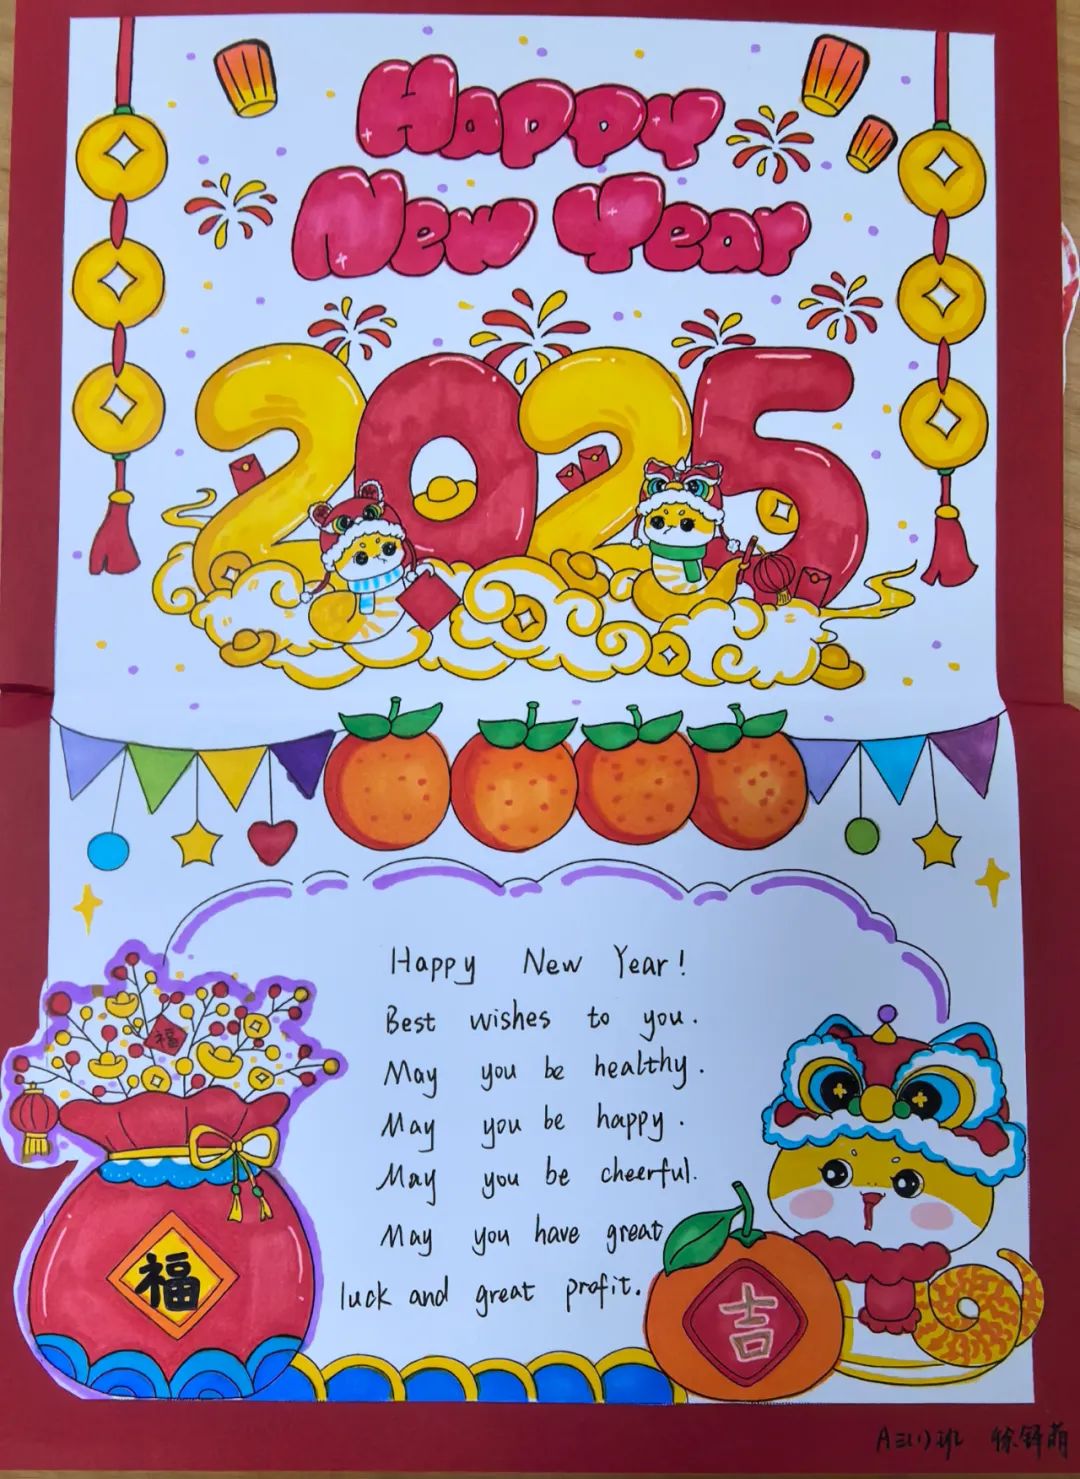 Happy
New Year
2025
Happy New Year!
Best wishes to you.
May you be healthy.
May you be happy.
May you be cheerful.
May you have great
luck and great profit.
福
福
吉
A三(1)班 徐铎萌